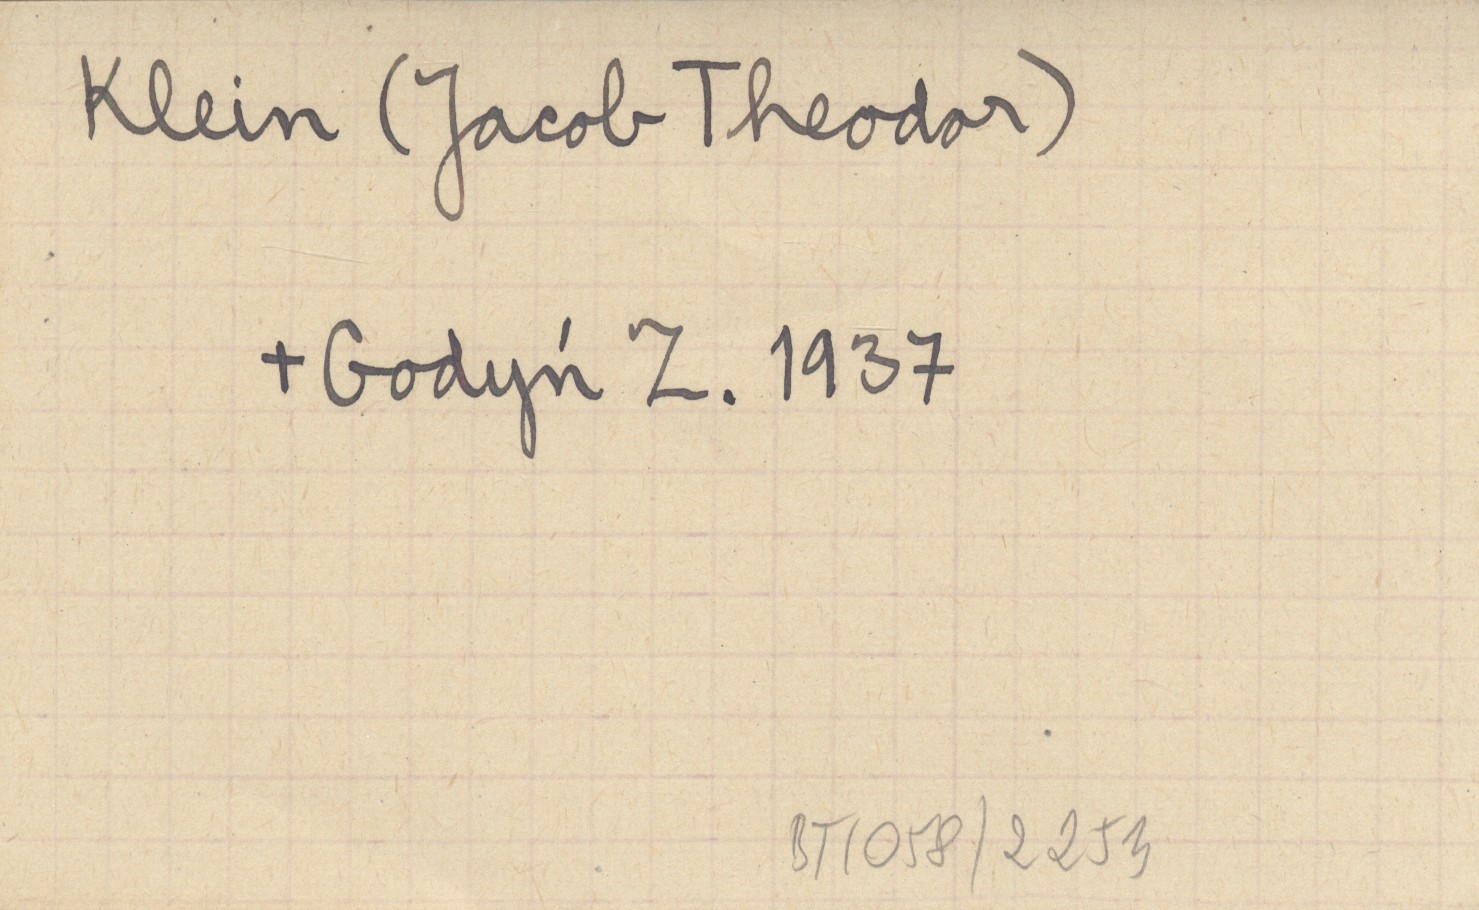 Klein (Jacob Theodor)
+ Godyń Z. 1937
BT/058/2253